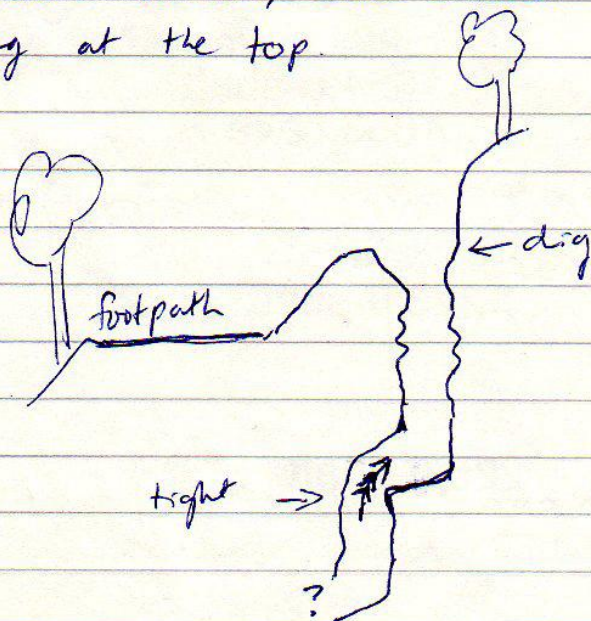 g at the top.
← dig
footpath
tight →
?